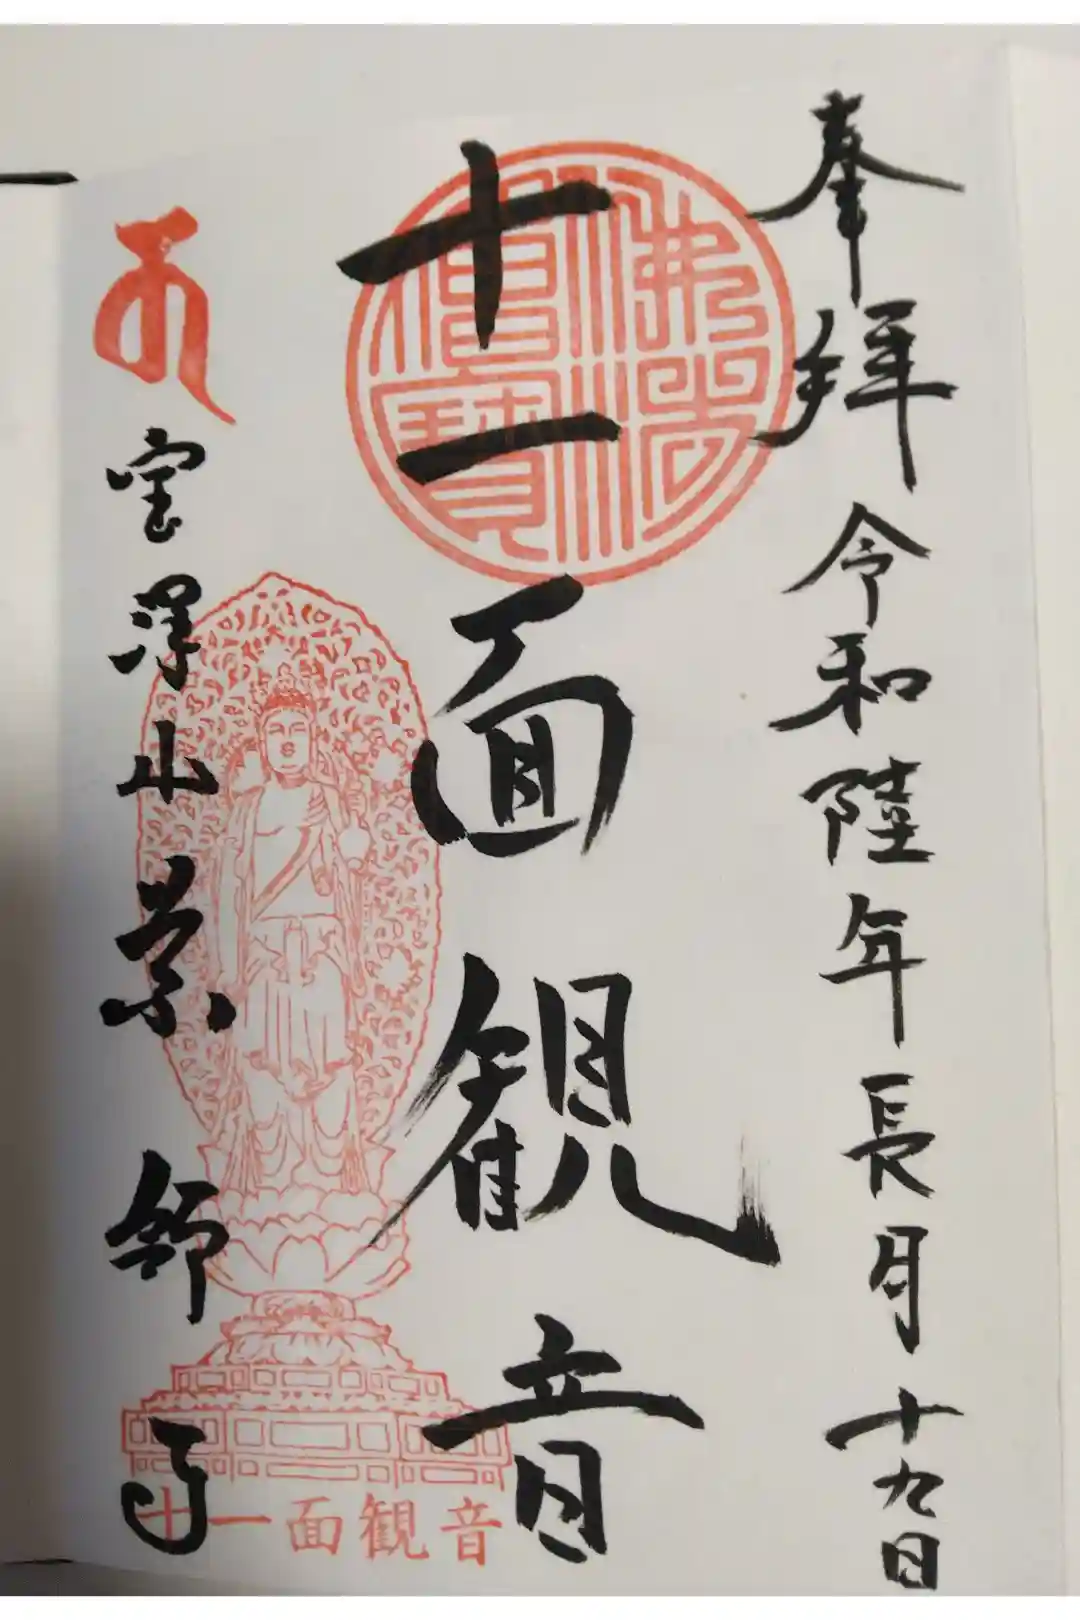 奉拝 令和陸年長月十九日
佛法僧寶
十一面観音
宝澤山
十一面観音